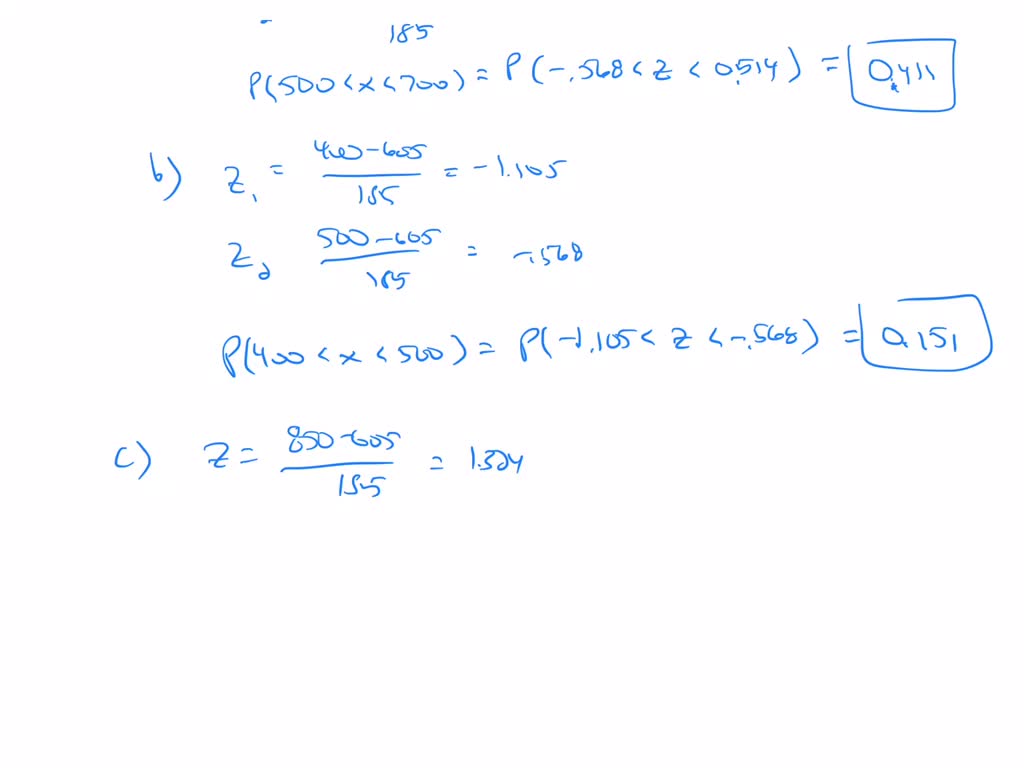 185
P(500<x<700) = P(-.568<z<0.514) = 0.411
b) Z₁ = 400-605 / 185 = -1.105
Z₂ 500-605 / 185 = -.568
P(400<x<500) = P(-1.105<z<-.568) = 0.151
c) Z = 850-605 / 185 = 1.324